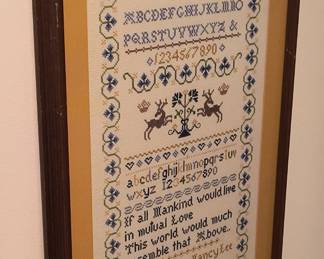 ABCDEFGHIJKLMNO
PQRSTUVWXYZ &
1234567890
abcdefghijklmnopqrstuv
wxyz 1234567890
If all Mankind would live
in mutual Love
This world would much
resemble that Above.
Nancy Lee